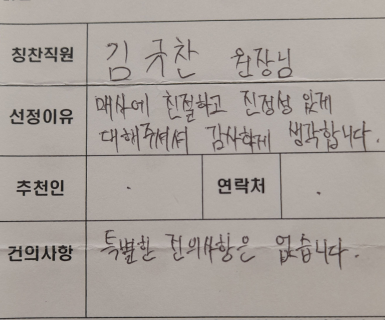 칭찬직원 김규찬 원장님
선정이유 매사에 친절하고 진정성 있게
대해주셔서 감사하게 생각합니다.
추천인 . 연락처 .
건의사항 특별한 건의사항은 없습니다.